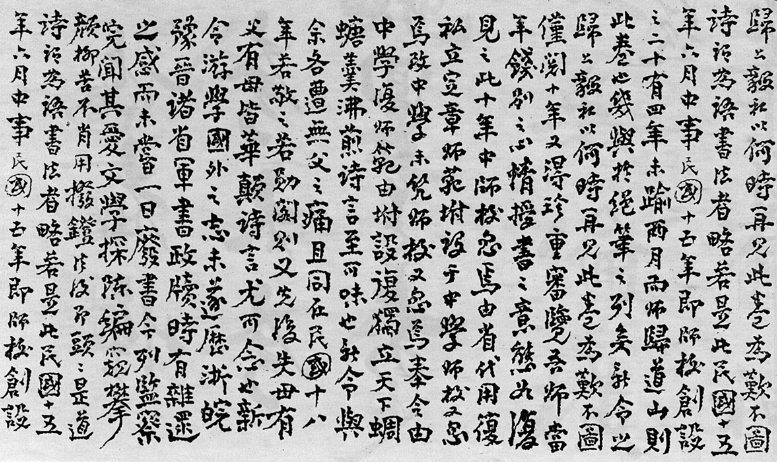 歸公毅私以何時再見此卷為歎不圖
詩話為語書法者略若是此民國十五
年六月中事民國十五年即師校創設
之二十有四年未踰兩月而師歸道山則
此卷也幾與於絕筆之列矣新令之
歸公毅私以何時再見此卷為歎不圖
僅閱十年又得珍重審覽吾師當
年餞別之心情授書之意態如復
見之此十年中師校忽焉由省代用復
私立定章師范坿設于中學師校又忽
焉改中學未幾師校又忽焉奉令由
中學復師範由坿設復獨立天下蜩
螗羹沸煎詩言至可味也新令與
余各遭無父之痛且同在民國十八
年若敬之若勛閣則又先後失母有
父有母皆華顛詩言尤可念也新
令游學國外之志未遂歷浙皖
豫晉諸省軍書政牘時有雜遝
之感而未嘗一日廢書今列監察
院聞其愛文學探陳編窮攀
顏柳苦不肯用撥鐙法後即頭頭是道
詩話為語書法者略若是此民國十五
年六月中事民國十五年即師校創設